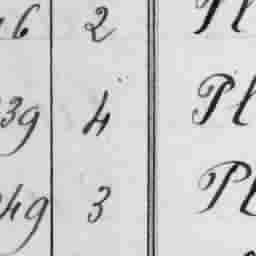 16 2 Pl
39 4 Pl
49 3 Pl